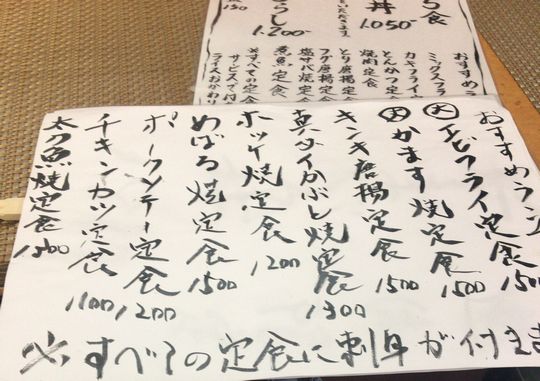 おすすめラン
大エビフライ定食 1500
大かます焼定食 1500
キンキ唐揚定食 1500
真ダイかぶと焼定食 1300
ホッケ焼定食 1200
めばる焼定食 1500
ポークソテー定食 1200
チキンカツ定食 1100
太刀魚焼定食 1500
※すべての定食に刺身が付きま
5食
丼
1.050-
らし
1.200-
おすすめラ
ミックスフラ
カキフライ定
とんかつ定食
焼肉定食
とり唐揚定食
フグ唐揚定食
塩サバ焼定食
煮魚定食
※すべての定食
サービスで付
ライスおかわり